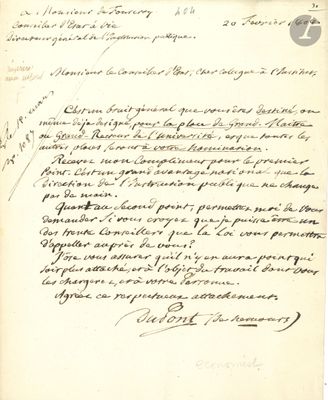 à Monsieur de Fourcroy
Conseiller d'Etat à Vie
Directeur général de l'Instruction publique.
404
20 Fevrier
Monsieur le Conseiller d'Etat, cher collegue à l'Institut,
C'est un bruit général que vous êtes destiné, ou
même déja désigné pour la place de Grand-Maitre
ou Grand-Recteur de l'Université, et que toutes les
autres places seront à votre Nomination.
Recevez mon Compliment pour le premier
Point. C'est un grand avantage national que la
Direction de l'Instruction publique ne change
pas de main.
Quant au second point, permettez moi de vous
demander si vous croyez que je puisse être un
des trente Conseillers que la Loi vous permettra
d'appeller auprès de vous?
J'ose vous assurer qu'il n'y en aura point qui
soit plus attaché, et à l'objet du travail dont vous
les chargerez, et à votre Personne.
Agréez ce respectueux attachement.
DuPont (de Nemours)
economist